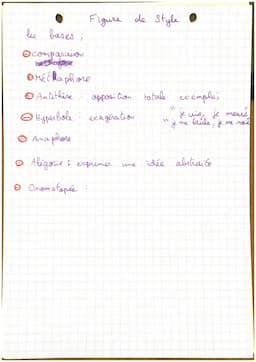 Figure de Style
les bases :
comparaison
Métaphore
Antithèse : opposition totale exemple :
Hyperbole : exagération "je vis, je meurs,
"je me brûle, je me noie
Anaphore
Alégorie : exprimer une idée abstraite
Onomatopée :